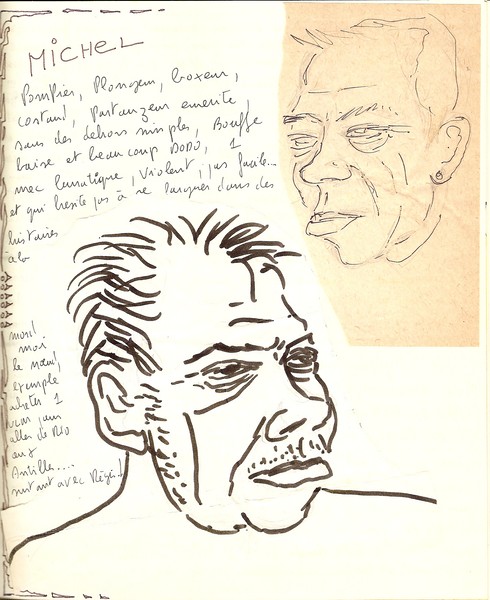 MicheL
Pompier, Plongeur, boxeur,
costaud, Partouzeur emerite
sous des dehors simples, Bouffe
baise et beaucoup DODO, 1
mec lunatique, Violent, pas facile...
et qui hesite pas à se Parquer dans des
histoires
à la
mord
moi
le nœud,
exemple
acheter 1
pour
aller de Rio
aux
Antilles....
surtout avec Régis!